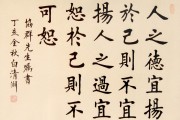 人之德宜揚
於己則不宜
揚人之過宜
恕於己則不
可恕
協群先生囑書
丁亥金秋白清